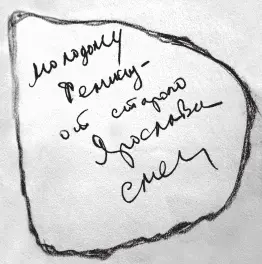 молодому
от старого
Ярослава
Смел